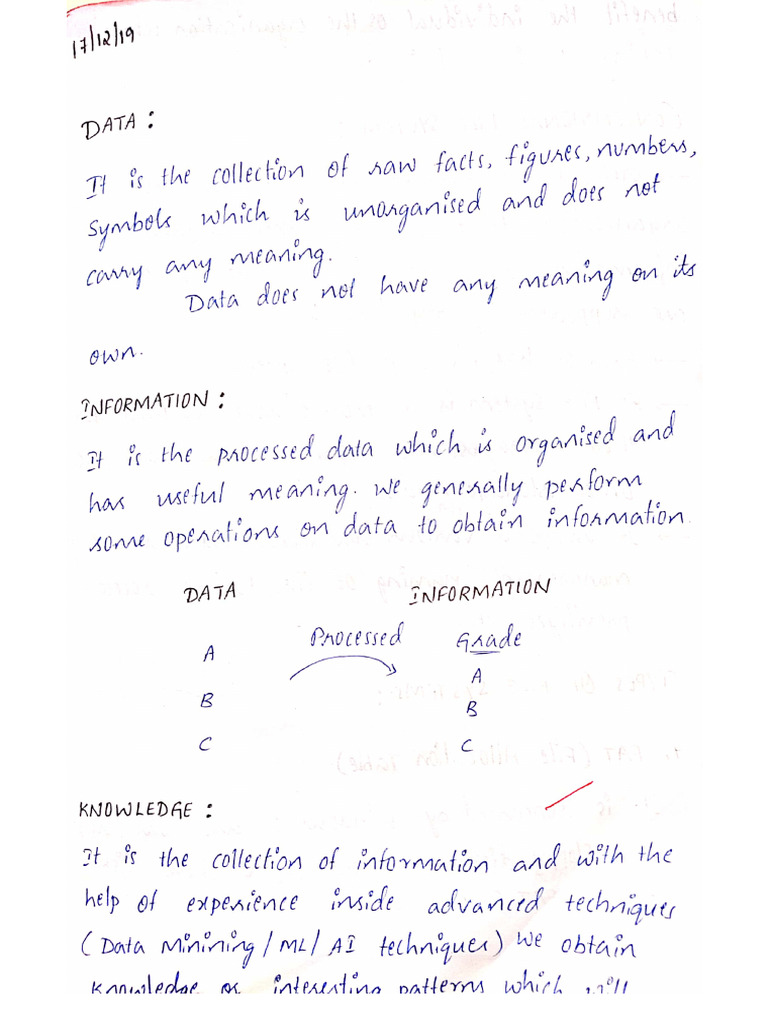 17/12/19
DATA:
It is the collection of raw facts, figures, numbers,
symbols which is unorganised and does not
carry any meaning.
Data does not have any meaning on its
own.
INFORMATION:
It is the processed data which is organised and
has useful meaning. We generally perform
some operations on data to obtain information
DATA INFORMATION
Processed Grade
A A
B B
C C
KNOWLEDGE:
It is the collection of information and with the
help of experience inside advanced techniques
(Data Minining/ML/AI techniques) we obtain
knowledge or interesting patterns which will